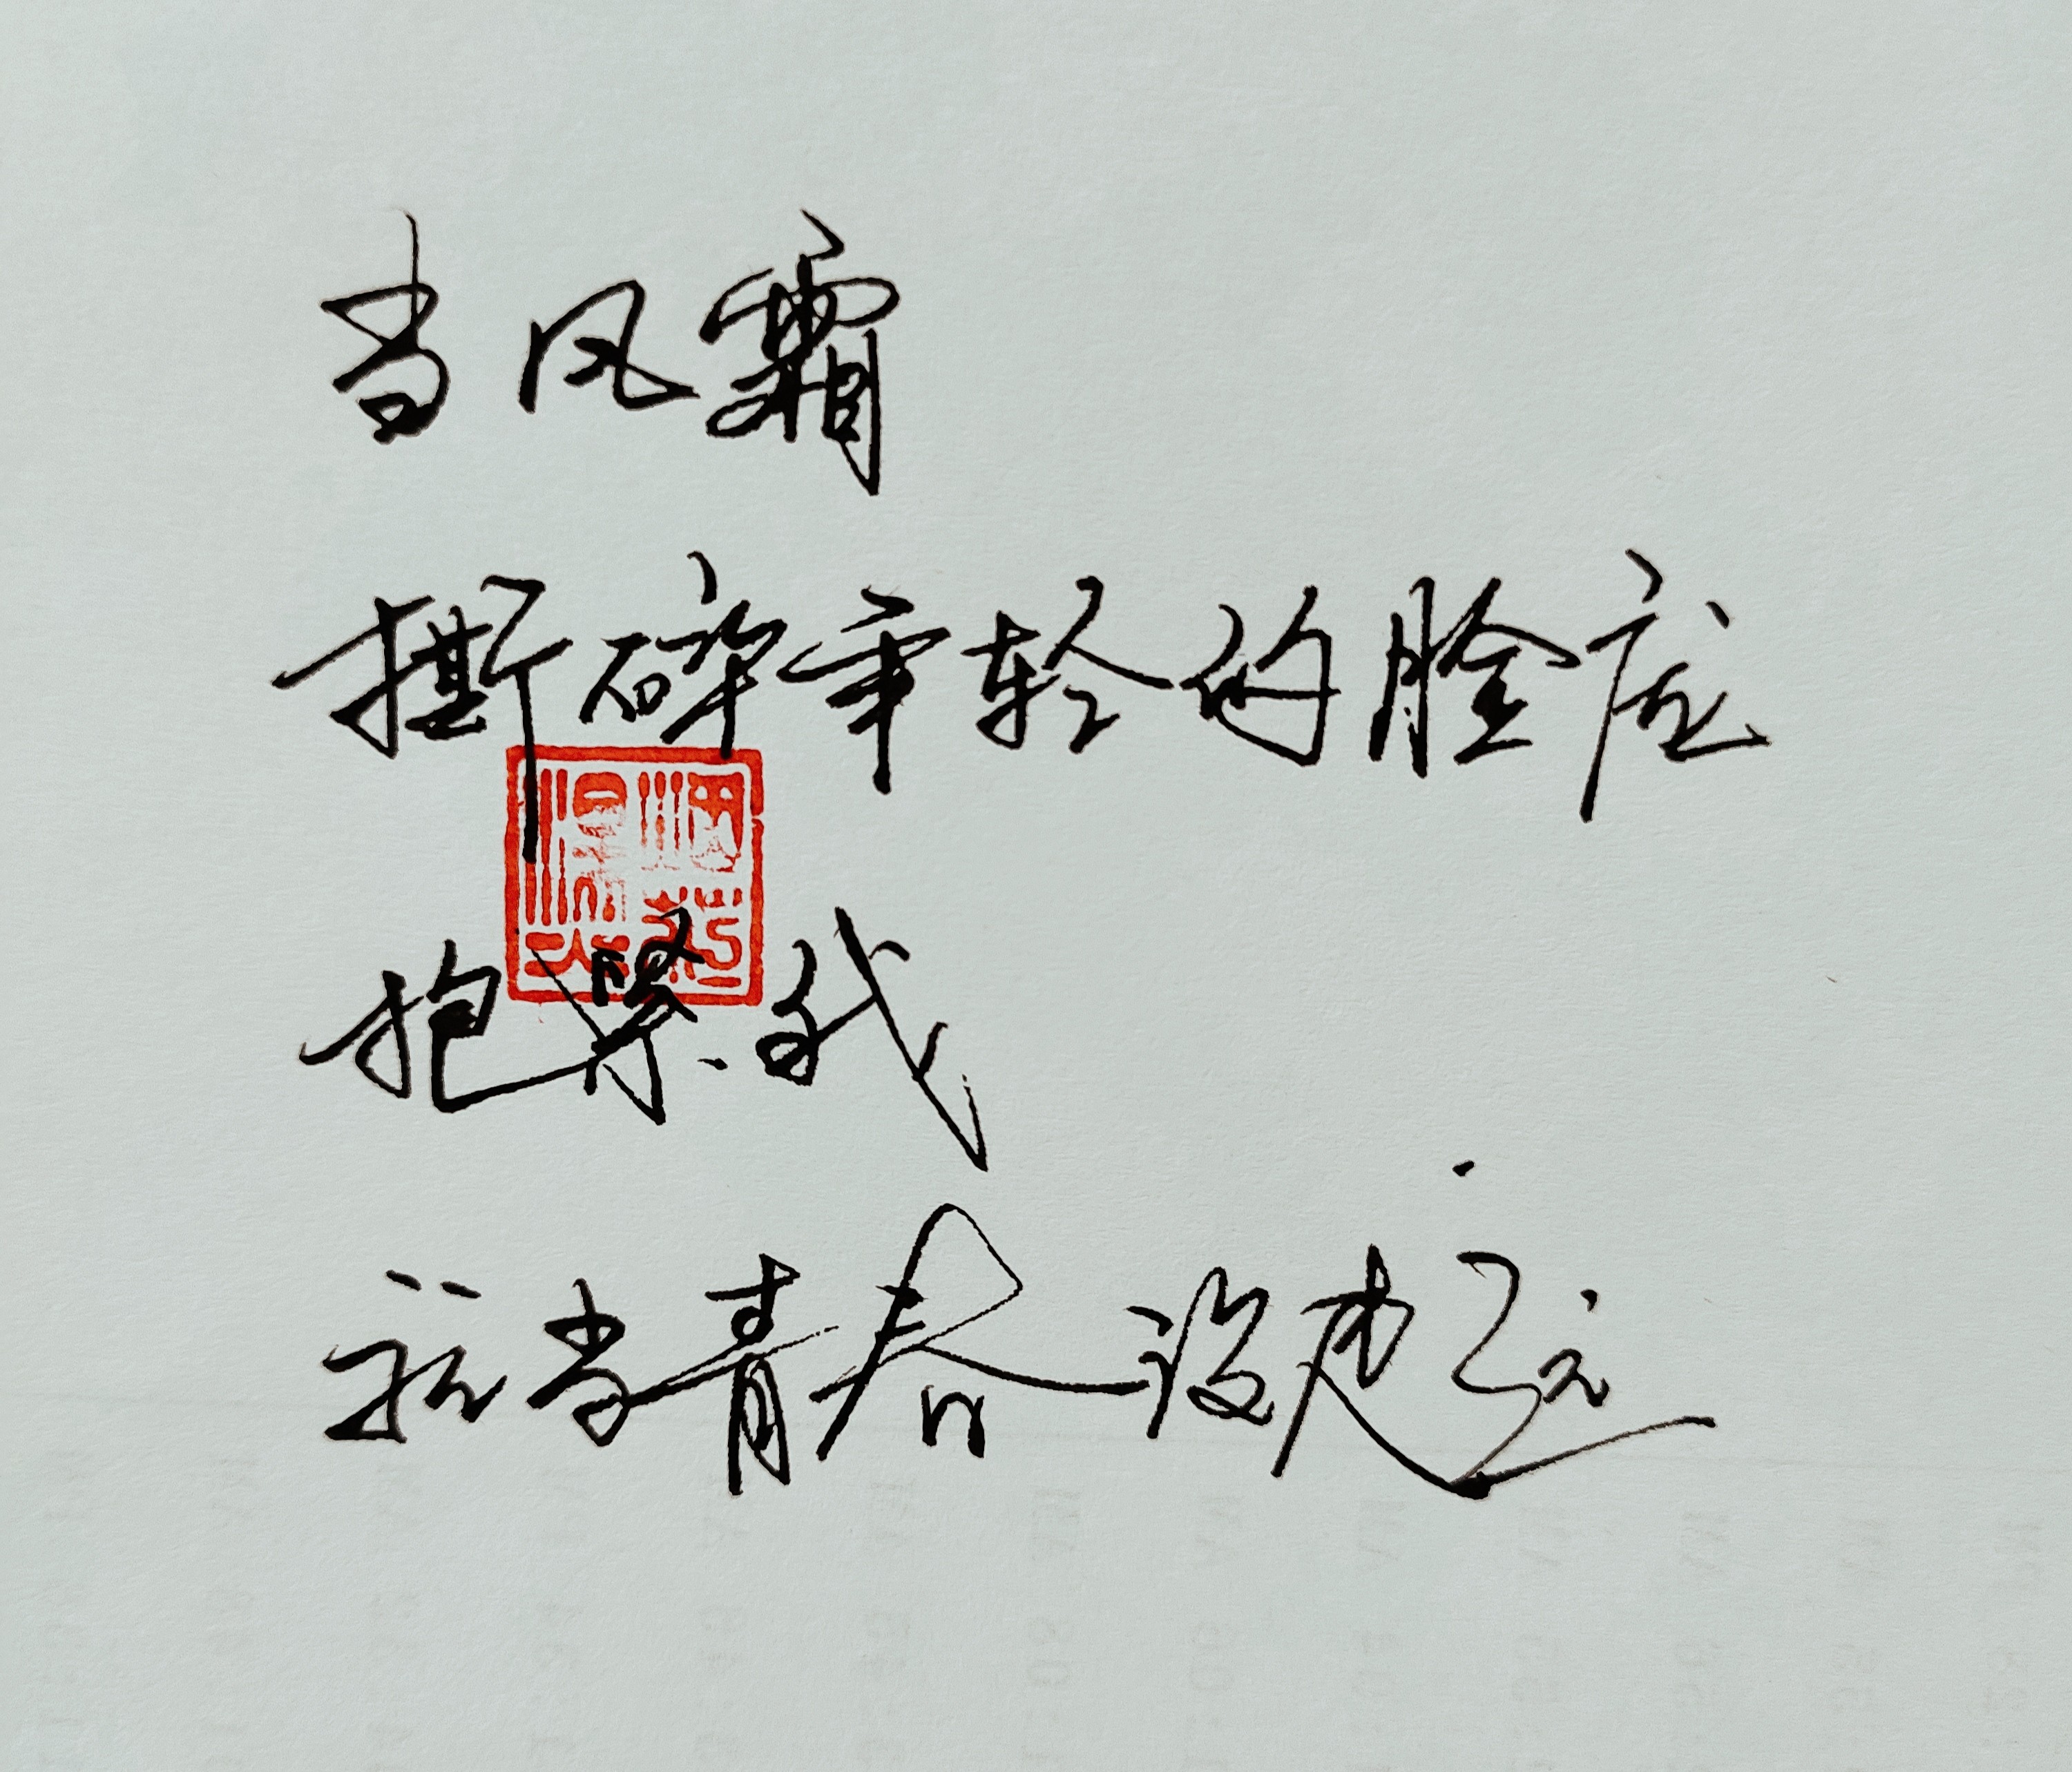 当风霜
撕碎年轻的脸庞
抱紧我
就当青春没走远